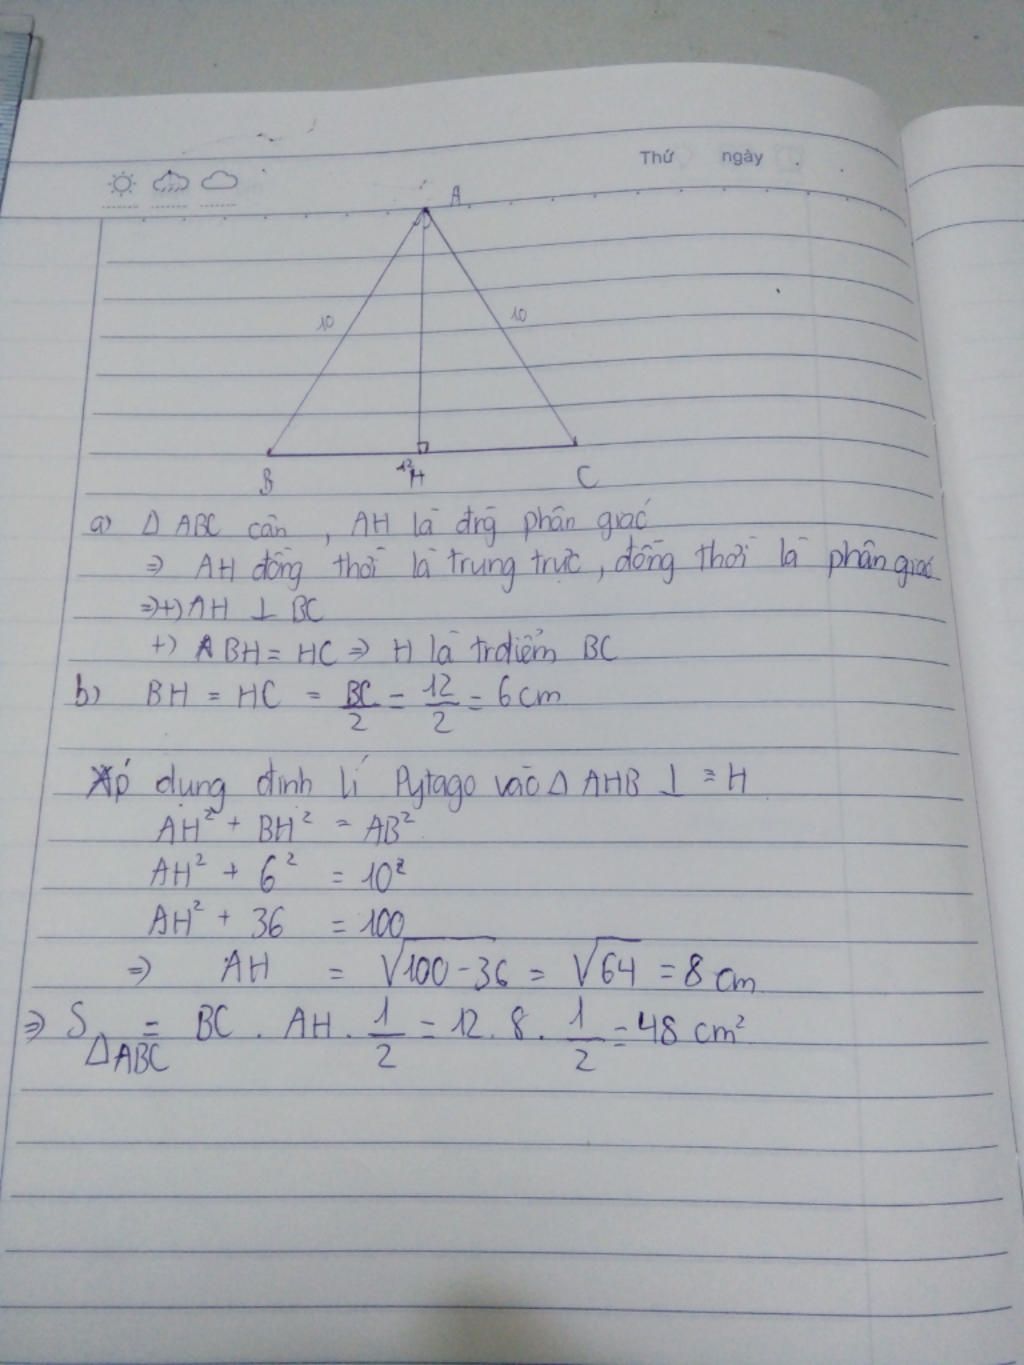 Thứ ngày
A
10 10
B 12 H C
a) Δ ABC cân , AH là đrg phân giác
⇒ AH đồng thời là trung trực, đồng thời là phân giác
⇒+) AH ⊥ BC
+) BH = HC ⇒ H là trđiểm BC
b) BH = HC = BC/2 = 12/2 = 6 cm
Áp dụng định lí Pytago vào Δ AHB ⊥ ≡ H
AH² + BH² = AB²
AH² + 6² = 10²
AH² + 36 = 100
⇒ AH = √100-36 = √64 = 8 cm
⇒ S ΔABC = BC . AH . 1/2 = 12 . 8 . 1/2 = 48 cm²